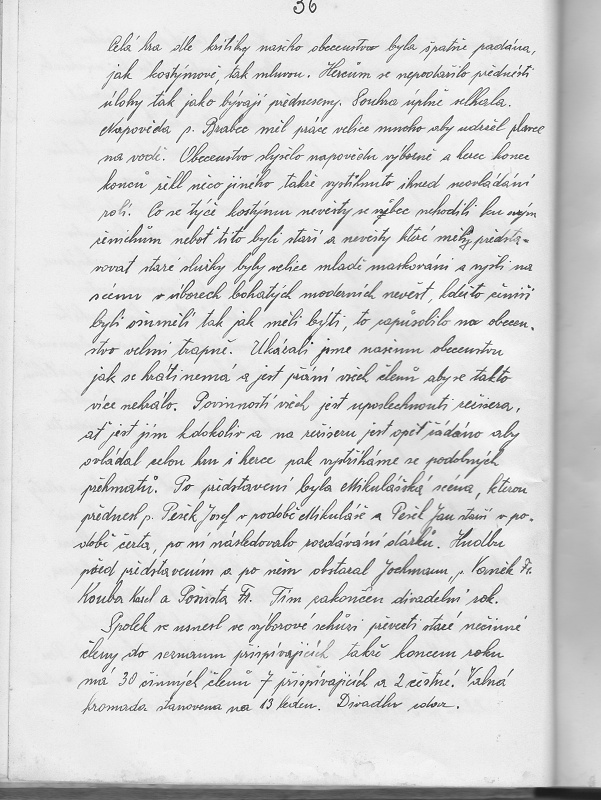 36
Celá hra dle kritiky našeho obecenstva byla špatně podána,
jak kostýmově, tak mluvou. Hercům se nepodařilo přednésti
úlohy tak jako bývají předneseny. Souhra úplně selhala.
Napověda p. Brabec měl práce velice mnoho aby udržel plavce
na vodě. Obecenstvo slyšelo napovědu výborně a herec konec
konců řekl něco jiného takže vystihnuto ihned neovládání
rolí. Co se týče kostýmu nevěsty se vůbec nehodili ku svým
ženichům neboť tito byli staří a nevěsty které měly předsta-
vovat staré služky byly velice mladě maskováni a vyšli na
scénu v úborech bohatých moderních nevěst, kdežto ženiši
byli ošumělí tak jak měli býti, to zapůsobilo na obecen-
stvo velmi trapně. Ukázali jsme našemu obecenstvu
jak se hráti nemá a jest přání všech členů aby se takto
více nehrálo. Povinností všech jest uposlechnouti režisera,
ať jest jím kdokoliv a na režiseru jest opět žádáno aby
ovládal celou hru i herce pak vystříháme se podobných
přehmatů. Po představení byla Mikulášská scéna, kterou
přednesl p. Pešek Josef v podobě Mikuláše a Pešek Jan starší v po-
době čerta, po ní následovalo rozdávání dárků. Hudbu
před představením a po něm obstaral Jochmann, p. Vaněk Fr.
Kouba Karel a Fr. Tím zakončen divadelní rok.
Spolek se usnesl ve výborové schůzi převésti staré nečinné
členy do seznamu přispívajících takže koncem roku
má 30 činných členů 7 přispívajících a 2 čestné. Valná
hromada stanovena na 13 leden. Divadlu zdar.